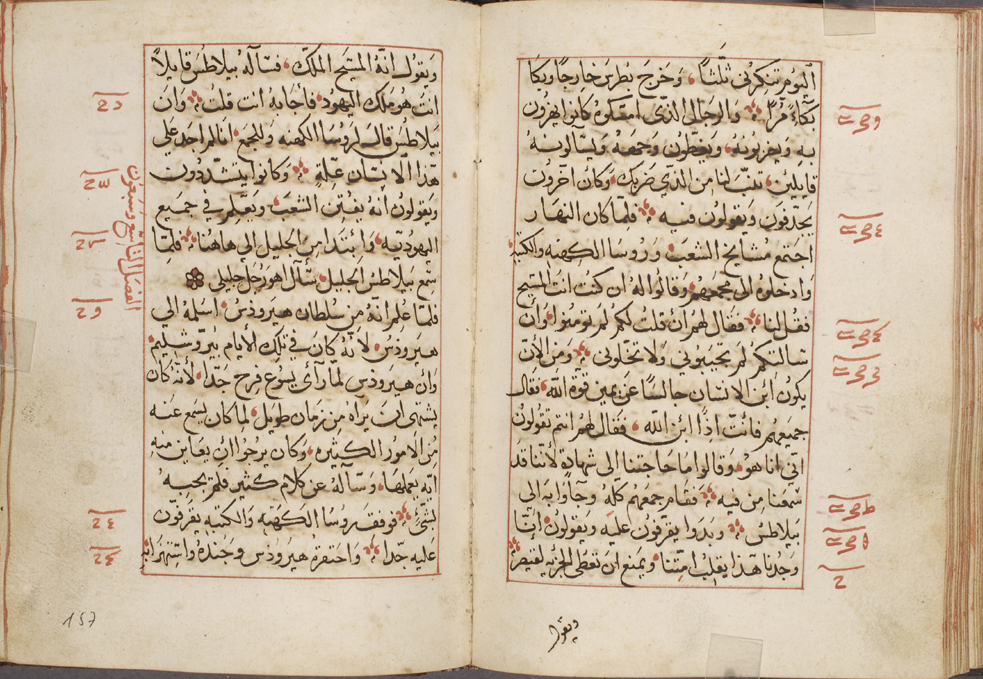 اليوم تنكرني ثلثاً، وخرج بطرس خارجاً وبكا
بكاءً مرّاً والرجال الذي امسكوه كانوا يهزون
به ويضربونه، ويغطون وجهه ويسالونه
قايلين، تنبّى لنا من الذي ضربك، وكان اخرون
يجدّفون ويقولون فيه فلمّا كان النهار
اجتمع مشايخ الشعب ورووسا الكهنه والكتبه
وادخلوه الى مجمعهم، وقالوا له ان كنت انت المسيح
فقل لنا، فقال لهم ان قلت لكم لم تومنوا، وان
سالتكم لم تجيبوني ولا تخلوني، ومن الان
يكون ابن الانسان جالساً عن يمين قوّة الله، فقال
جميعهم فانت اذاً ابن الله، فقال لهم انتم تقولون
اني انا هو، وقالوا ما حاجتنا الى شهادة لاننا قد
سمعنا من فيه فقام جمعهم كلّه وجاوا به الى
بيلاطس وبدوا يقرفون عليه ويقولون، انّا
وجدنا هذا يقلب امّتنا، ويمنع ان نعطي الجزيه لقيصر
ويقول
ويقول انّه المسيح الملك، فسآله بيلاطس قايلاً
انت هو ملك اليهود، فاجابه انت قلت، وان
بيلاطس قال لروسا الكهنه وللجمع، انا لم اجد على
هذا الانسان علّة وكانوا يتشدّدون
ويقولون انّه يفتن الشعب، ويعلم في جميع
اليهوديّه، وابتدا من الجليل الى هاهنا، فلمّا
سمع بيلاطس الجليل، سآل اهو رجل جليلي
فلمّا علم انّه من سلطان هيرودس، ارسله الى
هيرودس، لانّه كان في تلك الايام بيروشليم،
وان هيرودس لمّا رآى يسوع فرح جدّا، لانّه كان
يشتهي ان يراه من زمان طويل، لما كان يسمع عنه
من الامور الكثيره، وكان يرجوا ان يعاين منه
ايه يعملها، وسآله عن كلام كثير فلم يجبه
بشيْ فوقف روسا الكهنه والكتبه يقرفون
عليه جدّا، واحتقره هيرودس وجنده واستهزا به
الفصل التاسع وسبعون
157